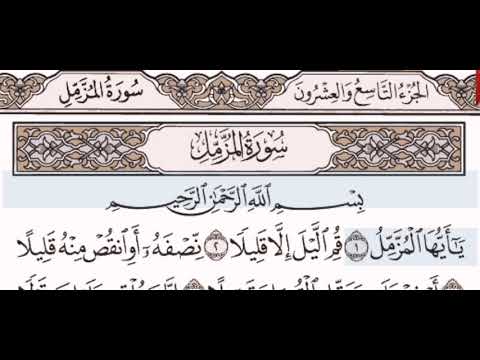 الجُزْءُ التَّاسِعُ وَالعِشْرُونَ
سُورَةُ المُزَّمِّل
سُورَةُ المُزَّمِّل
بِسْمِ ٱللَّهِ ٱلرَّحْمَٰنِ ٱلرَّحِيمِ
يَٰٓأَيُّهَا ٱلْمُزَّمِّلُ ١ قُمِ ٱلَّيْلَ إِلَّا قَلِيلًا ٢ نِّصْفَهُۥٓ أَوِ ٱنقُصْ مِنْهُ قَلِيلًا